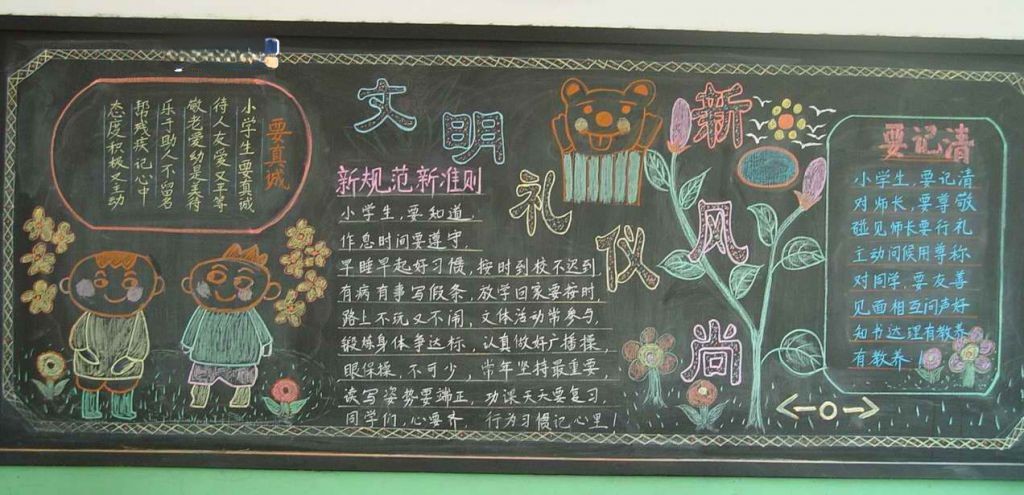 文明
礼仪
新风尚
要真诚
小学生要真诚
待人友爱又平等
敬老爱幼是美德
乐于助人不留名
帮残疾记心中
态度积极又主动
新规范新准则
小学生,要知道,
作息时间要遵守,
早睡早起好习惯,按时到校不迟到
有病有事写假条,放学回家要按时,
路上不玩又不闹,文体活动常参与,
锻炼身体争达标,认真做好广播操,
眼保操,不可少,常年坚持最重要
读写姿势要端正,功课天天要复习,
同学们,心要齐,行为习惯记心里!
要记清
小学生,要记清
对师长,要尊敬
碰见师长要行礼
主动问候用尊称
对同学,要友善
见面相互问声好
知书达理有教养
有教养!